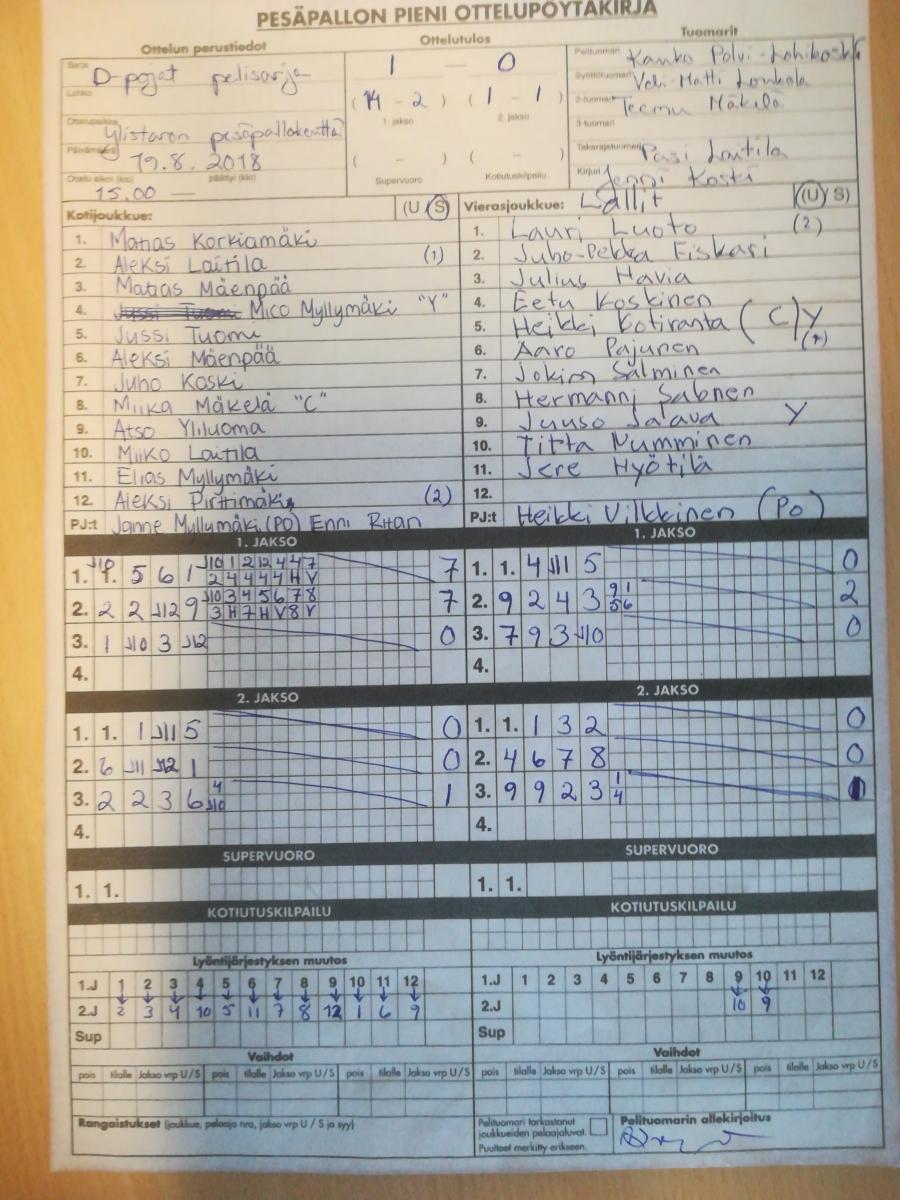 PESÄPALLON PIENI OTTELUPÖYTÄKIRJA
Ottelun perustiedot Ottelutulos Tuomarit
Sarja D-pojat pelisarja 1 — 0 Pelituomari Kauko Polvi-Lohikoski
Lohko (14 - 2) (1 - 1) Syöttötuomari Veli-Matti Loukola
1. jakso 2. jakso 2-tuomari Teemu Mäkelä
Ottelupaikka Ylistaron pesäpallokenttä 3-tuomari
Päivämäärä 19.8.2018 ( - ) ( - ) Takarajatuomari Pasi Laitila
Ottelu alkoi (klo) 15.00 — päättyi (klo) Supervuoro Kotiutuskilpailu Kirjuri Jenni Koski
Kotijoukkue: (U S) Vierasjoukkue: Lallit (U S)
1. Matias Korkiamäki 1. Lauri Luoto (2)
2. Aleksi Laitila (1) 2. Juho-Pekka Eiskari
3. Matias Mäenpää 3. Julius Havia
4. Jussi Tuomi Mico Myllymäki "Y" 4. Eetu Koskinen
5. Jussi Tuomi 5. Heikki Kotiranta (C) Y
6. Aleksi Mäenpää 6. Aaro Pajunen
7. Juho Koski 7. Jokim Salminen
8. Miika Mäkelä "C" 8. Hermanni Salonen
9. Atso Yliluoma 9. Juuso Jalava Y
10. Miiko Laitila 10. Titta Numminen
11. Elias Myllymäki 11. Jere Hyötilä
12. Aleksi Pirttimäki (2) 12.
PJ:t Janne Myllymäki (PO) Enni Ritari PJ:t Heikki Vilkkinen (Po)
1. JAKSO 1. JAKSO
1. 1. 5 6 1 J10 1 2 12 4 4 7 7 1. 1. 4 J11 5 0
2 4 4 4 4 H V
2. 2 2 J12 9 J10 3 4 5 6 7 8 7 2. 9 2 4 3 9 1 2
3 H 7 H V 8 V 5 6
3. 1 J10 3 J12 0 3. 7 9 3 J10 0
4. 4.
2. JAKSO 2. JAKSO
1. 1. 1 J11 5 0 1. 1. 1 3 2 0
2. 6 J11 J12 1 0 2. 4 6 7 8 0
3. 2 2 3 6 4 J10 1 3. 9 9 2 3 1 4
4. 4.
SUPERVUORO SUPERVUORO
1. 1. 1. 1.
KOTIUTUSKILPAILU KOTIUTUSKILPAILU
Lyöntijärjestyksen muutos Lyöntijärjestyksen muutos
1.J 1 2 3 4 5 6 7 8 9 10 11 12 1.J 1 2 3 4 5 6 7 8 9 10 11 12
2.J 2 3 4 10 5 11 7 8 12 1 6 9 2.J 10 9
Sup Sup
Vaihdot Vaihdot
pois tilalle Jakso vrp U/S pois tilalle Jakso vrp U/S pois tilalle Jakso vrp U/S pois tilalle Jakso vrp U/S pois tilalle Jakso vrp U/S pois tilalle Jakso vrp U/S
Rangaistukset (joukkue, pelaaja nro, jakso vrp U / S ja syy) Pelituomari tarkastanut Pelituomarin allekirjoitus
joukkueiden pelaajaluvat.
Puutteet merkitty erikseen.